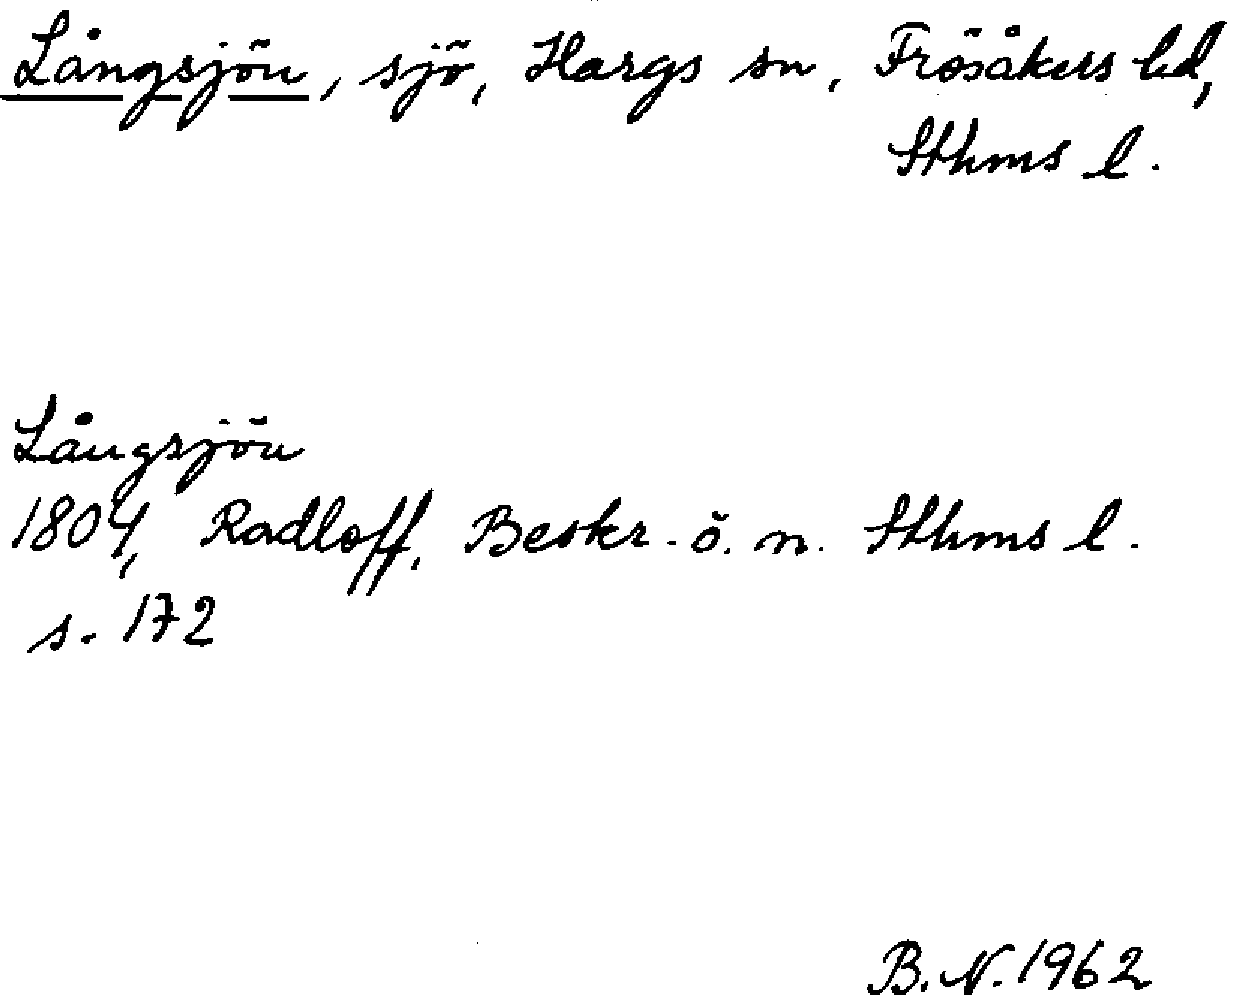 Långsjön, sjö, Hargs sn, Frösåkers hd,
Sthms l.
Långsjön
1804, Radloff, Beskr. ö. n. Sthms l.
s. 172
B.N. 1962